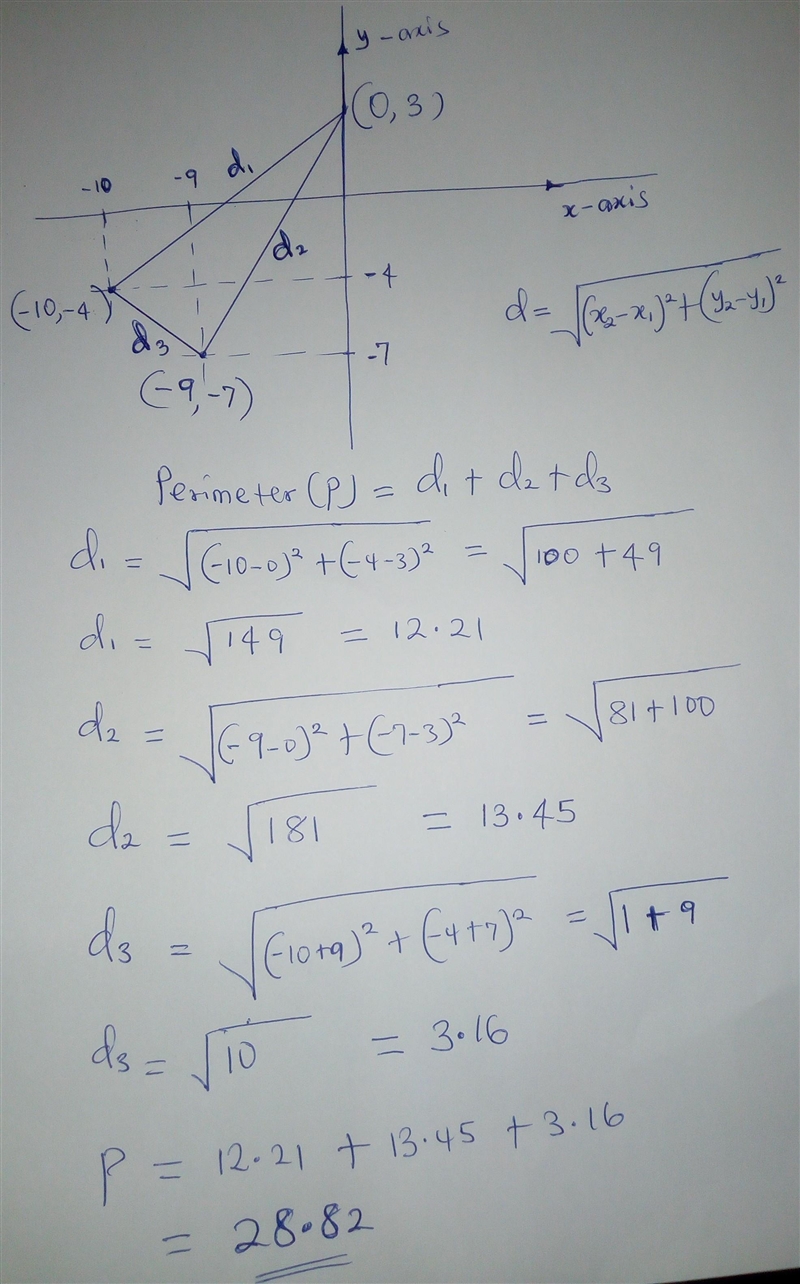 y-axis
(0, 3)
-10
-9
d₁
x-axis
d₂
-4
(-10,-4)
d = √(x₂-x₁)²+(y₂-y₁)²
d₃
-7
(-9,-7)
Perimeter (P) = d₁ + d₂ + d₃
d₁ = √(-10-0)² + (-4-3)² = √100 + 49
d₁ = √149 = 12.21
d₂ = √(-9-0)² + (-7-3)² = √81+100
d₂ = √181 = 13.45
d₃ = √(-10+9)² + (-4+7)² = √1 + 9
d₃ = √10 = 3.16
P = 12.21 + 13.45 + 3.16
= 28.82